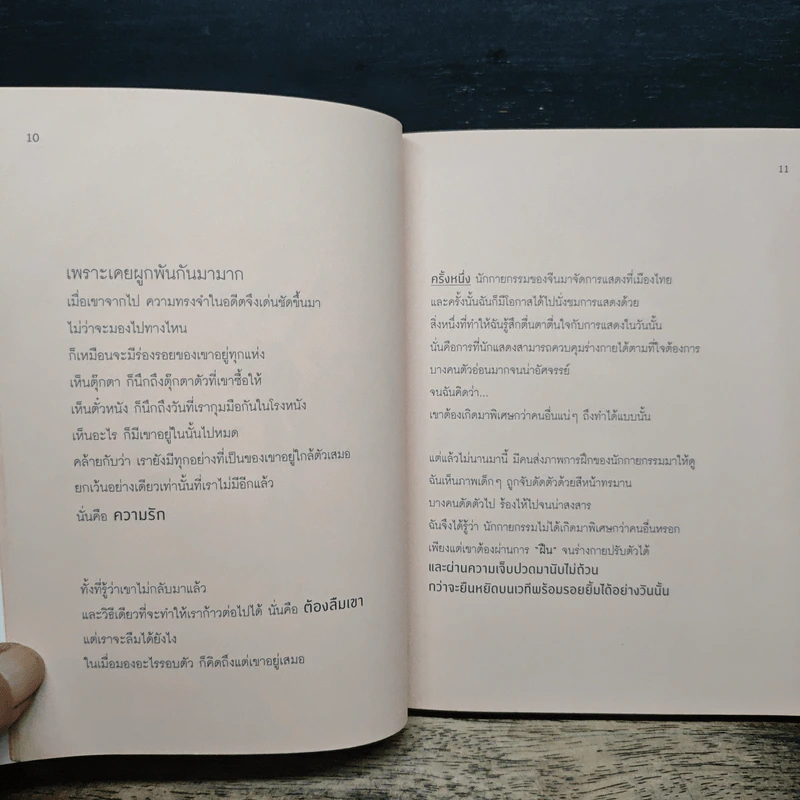 10
เพราะเคยผูกพันกันมามาก
เมื่อเขาจากไป ความทรงจำในอดีตจึงเด่นชัดขึ้นมา
ไม่ว่าจะมองไปทางไหน
ก็เหมือนจะมีร่องรอยของเขาอยู่ทุกแห่ง
เห็นตุ๊กตา ก็นึกถึงตุ๊กตาตัวที่เขาซื้อให้
เห็นตั๋วหนัง ก็นึกถึงวันที่เรากุมมือกันในโรงหนัง
เห็นอะไร ก็มีเขาอยู่ในนั้นไปหมด
คล้ายกับว่า เรายังมีทุกอย่างที่เป็นของเขาอยู่ใกล้ตัวเสมอ
ยกเว้นอย่างเดียวเท่านั้นที่เราไม่มีอีกแล้ว
นั่นคือ ความรัก
ทั้งที่รู้ว่าเขาไม่กลับมาแล้ว
และวิธีเดียวที่จะทำให้เราก้าวต่อไปได้ นั่นคือ ต้องลืมเขา
แต่เราจะลืมได้ยังไง
ในเมื่อมองอะไรรอบตัว ก็คิดถึงแต่เขาอยู่เสมอ
11
ครั้งหนึ่ง นักกายกรรมของจีนมาจัดการแสดงที่เมืองไทย
และครั้งนั้นฉันก็มีโอกาสได้ไปนั่งชมการแสดงด้วย
สิ่งหนึ่งที่ทำให้ฉันรู้สึกตื่นตาตื่นใจกับการแสดงในวันนั้น
นั่นคือการที่นักแสดงสามารถควบคุมร่างกายได้ตามที่ใจต้องการ
บางคนตัวอ่อนมากจนน่าอัศจรรย์
จนฉันคิดว่า...
เขาต้องเกิดมาพิเศษกว่าคนอื่นแน่ๆ ถึงทำได้แบบนั้น
แต่แล้วไม่นานมานี้ มีคนส่งภาพการฝึกของนักกายกรรมมาให้ดู
ฉันเห็นภาพเด็กๆ ถูกจับดัดตัวด้วยสีหน้าทรมาน
บางคนดัดตัวไป ร้องไห้ไปจนน่าสงสาร
ฉันจึงได้รู้ว่า นักกายกรรมไม่ได้เกิดมาพิเศษกว่าคนอื่นหรอก
เพียงแต่เขาต้องผ่านการ “ฝืน” จนร่างกายปรับตัวได้
และผ่านความเจ็บปวดมานับไม่ถ้วน
กว่าจะยืนหยัดบนเวทีพร้อมรอยยิ้มได้อย่างวันนั้น